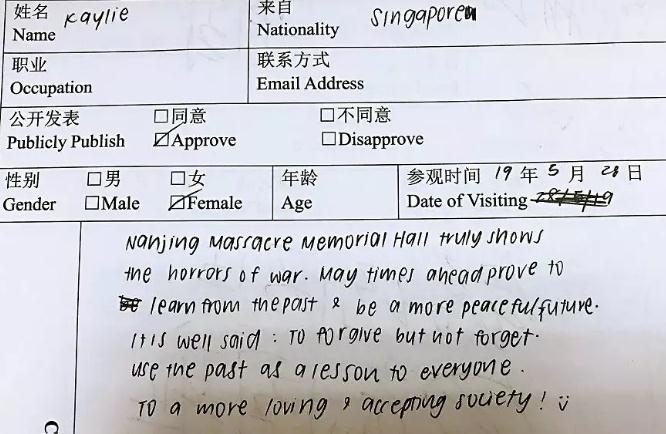 姓名 Kaylie 来自 Singaporean
Name Nationality
职业 联系方式
Occupation Email Address
公开发表 □同意 □不同意
Publicly Publish ☑Approve □Disapprove
性别 □男 □女 年龄 参观时间 19 年 5 月 28 日
Gender □Male ☑Female Age Date of Visiting 28/5/19
Nanjing Massacre Memorial Hall truly shows
the horrors of war. May times ahead prove to
learn from the past & be a more peaceful future.
It is well said : To forgive but not forget.
Use the past as a lesson to everyone.
To a more loving & accepting society! :)
C